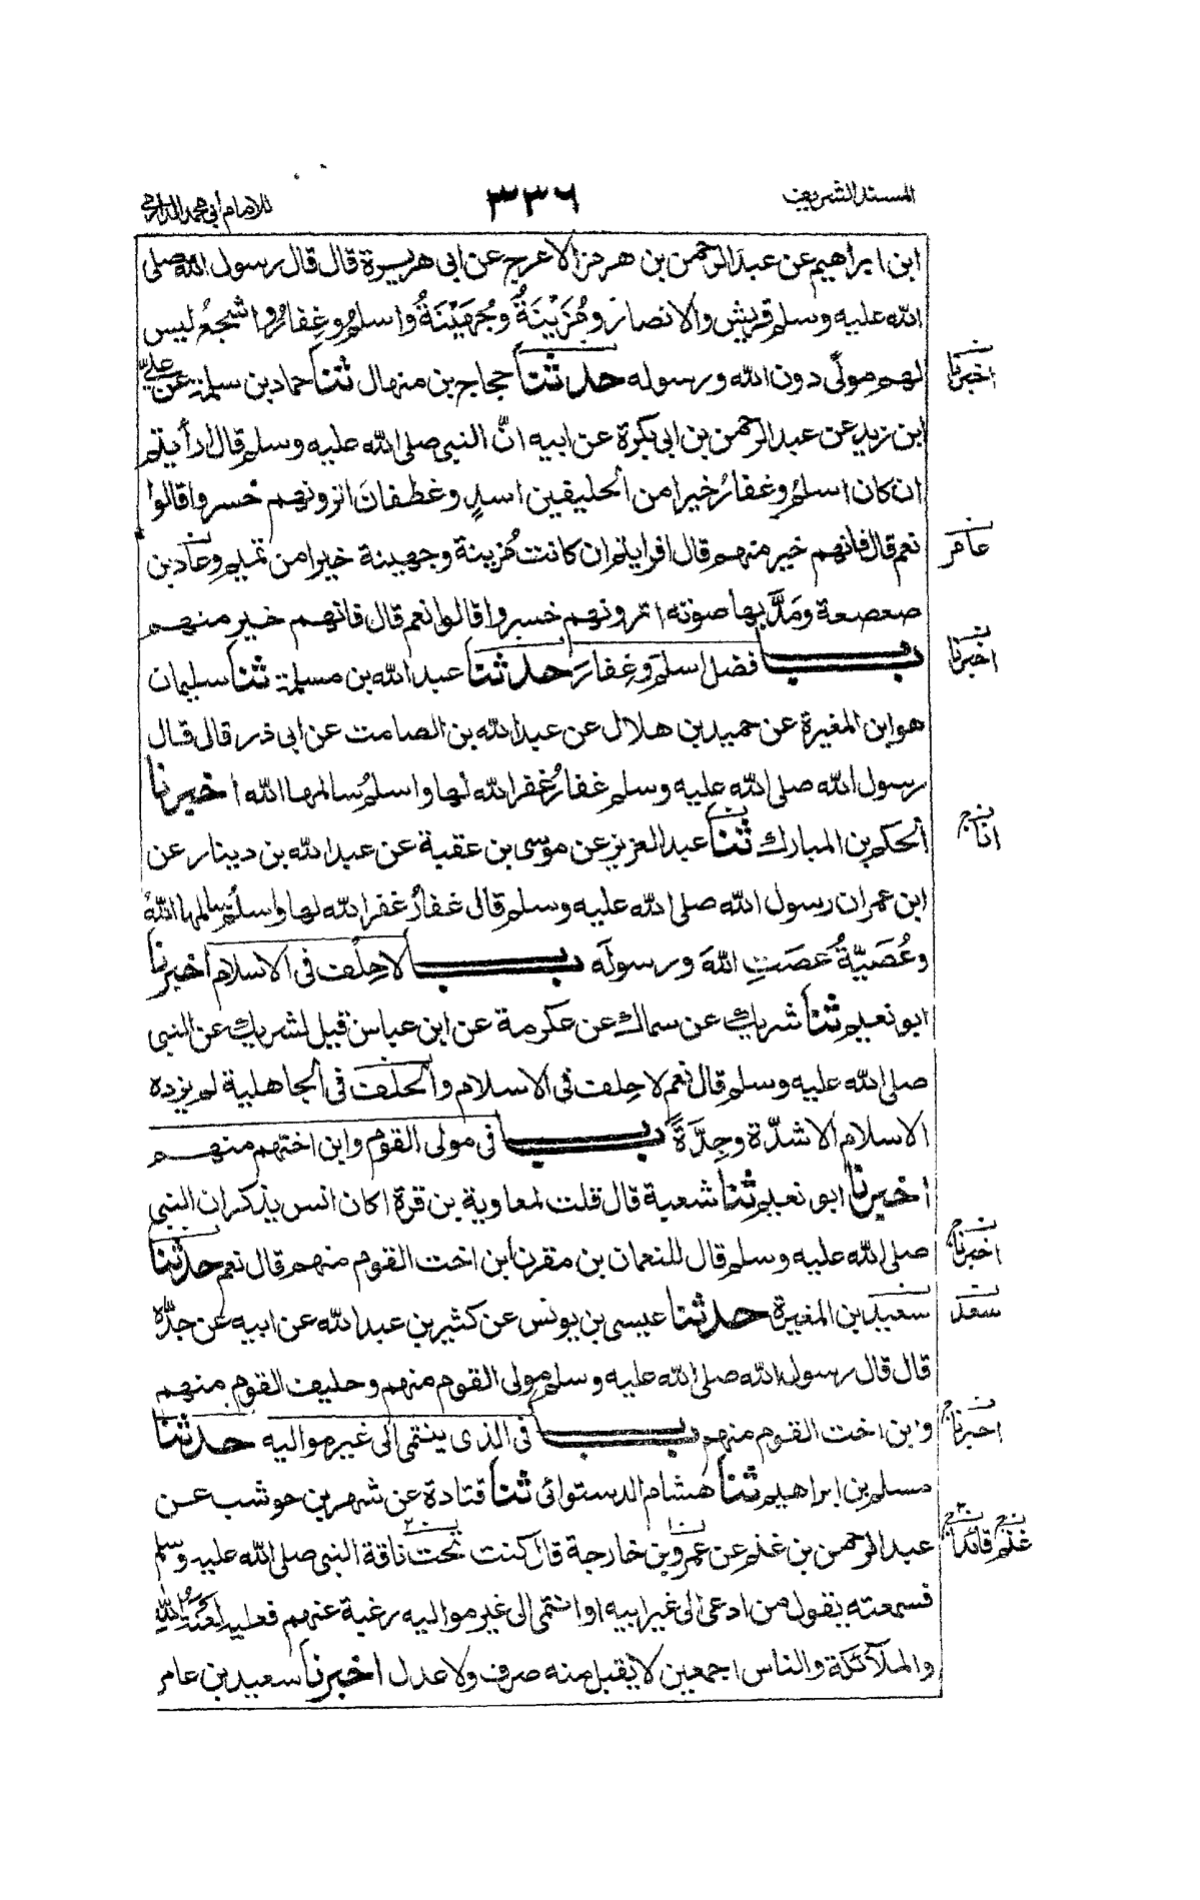 المسند الشريف ٣٣٦ للامام أبي محمد الدارمي
ابن ابراهيم عن عبد الرحمن بن هرمز الاعرج عن ابى هريرة قال قال رسول الله صلى
الله عليه وسلم قريش والانصار ومُزَيْنَةُ وجُهَيْنَةُ واسلمُ وغِفارُ واشجعُ ليس
لهم مولًى دون الله ورسوله حدثنا حجاج بن منهال ثنا حماد بن سلمة عن عليّ
اخبرنا
ابن زيد عن عبد الرحمن بن ابى بكرة عن ابيه انَّ النبى صلى الله عليه وسلم قال ارأيتم
ان كان اسلمُ وغفارُ خيرا من الحليفين اسدٍ وغطفانَ اترونهم خسروا قالوا
نعم قال فانهم خير منهم قال افرايتم ان كانت مُزينة وجهينة خيرا من تميم وعاد بن
عامر
صعصعة ومَدَّ بها صوته اترونهم خسروا قالوا نعم قال فانهم خير منهم
باب فضل اسلمَ وغِفارَ حدثنا عبد الله بن مسلمة ثنا سليمان
اخبرنا
هو ابن المغيرة عن حميد بن هلال عن عبد الله بن الصامت عن ابى ذر قال قال
رسول الله صلى الله عليه وسلم غفارُ غفر الله لها واسلمُ سالمها الله اخبرنا
الحكم بن المبارك ثنا عبد العزيز عن موسى بن عقبة عن عبد الله بن دينار عن
انا
ابن عمر ان رسول الله صلى الله عليه وسلم قال غفارُ غفر الله لها واسلمُ سالمها اللهُ
وعُصَيّةُ عَصَتِ اللهَ ورسولَه باب لا حِلْف فى الاسلام اخبرنا
ابو نعيم ثنا شريك عن سماك عن عكرمة عن ابن عباس قيل لشريك عن النبى
صلى الله عليه وسلم قال نعم لا حِلف فى الاسلام والحلف فى الجاهلية لم يزده
الاسلام الا شدّة وحِدَّةً باب فى مولى القوم وابن اختهم منهم
اخبرنا ابو نعيم ثنا شعبة قال قلت لمعاوية بن قرة اكان انس يذكر ان النبى
صلى الله عليه وسلم قال للنعمان بن مقرن ابن اخت القوم منهم قال نعم حدثنا
اخبرنا
سعيد بن المغيرة حدثنا عيسى بن يونس عن كثير بن عبد الله عن ابيه عن جدّه
سعد
قال قال رسول الله صلى الله عليه وسلم مولى القوم منهم وحليف القوم منهم
وابن اخت القوم منهم باب فى الذى ينتمى الى غير مواليه حدثنا
اخبرنا
مسلم بن ابراهيم ثنا هشام الدستوائى ثنا قتادة عن شهر بن حوشب عن
عبد الرحمن بن غنم عن عمرو بن خارجة قال كنت تحت ناقة النبى صلى الله عليه وسلم
غنم
فسمعته يقول من ادعى الى غير ابيه او انتمى الى غير مواليه رغبة عنهم فعليه لعنةُ الله
والملآئكة والناس اجمعين لا يقبل منه صرف ولا عدل اخبرنا سعيد بن عامر